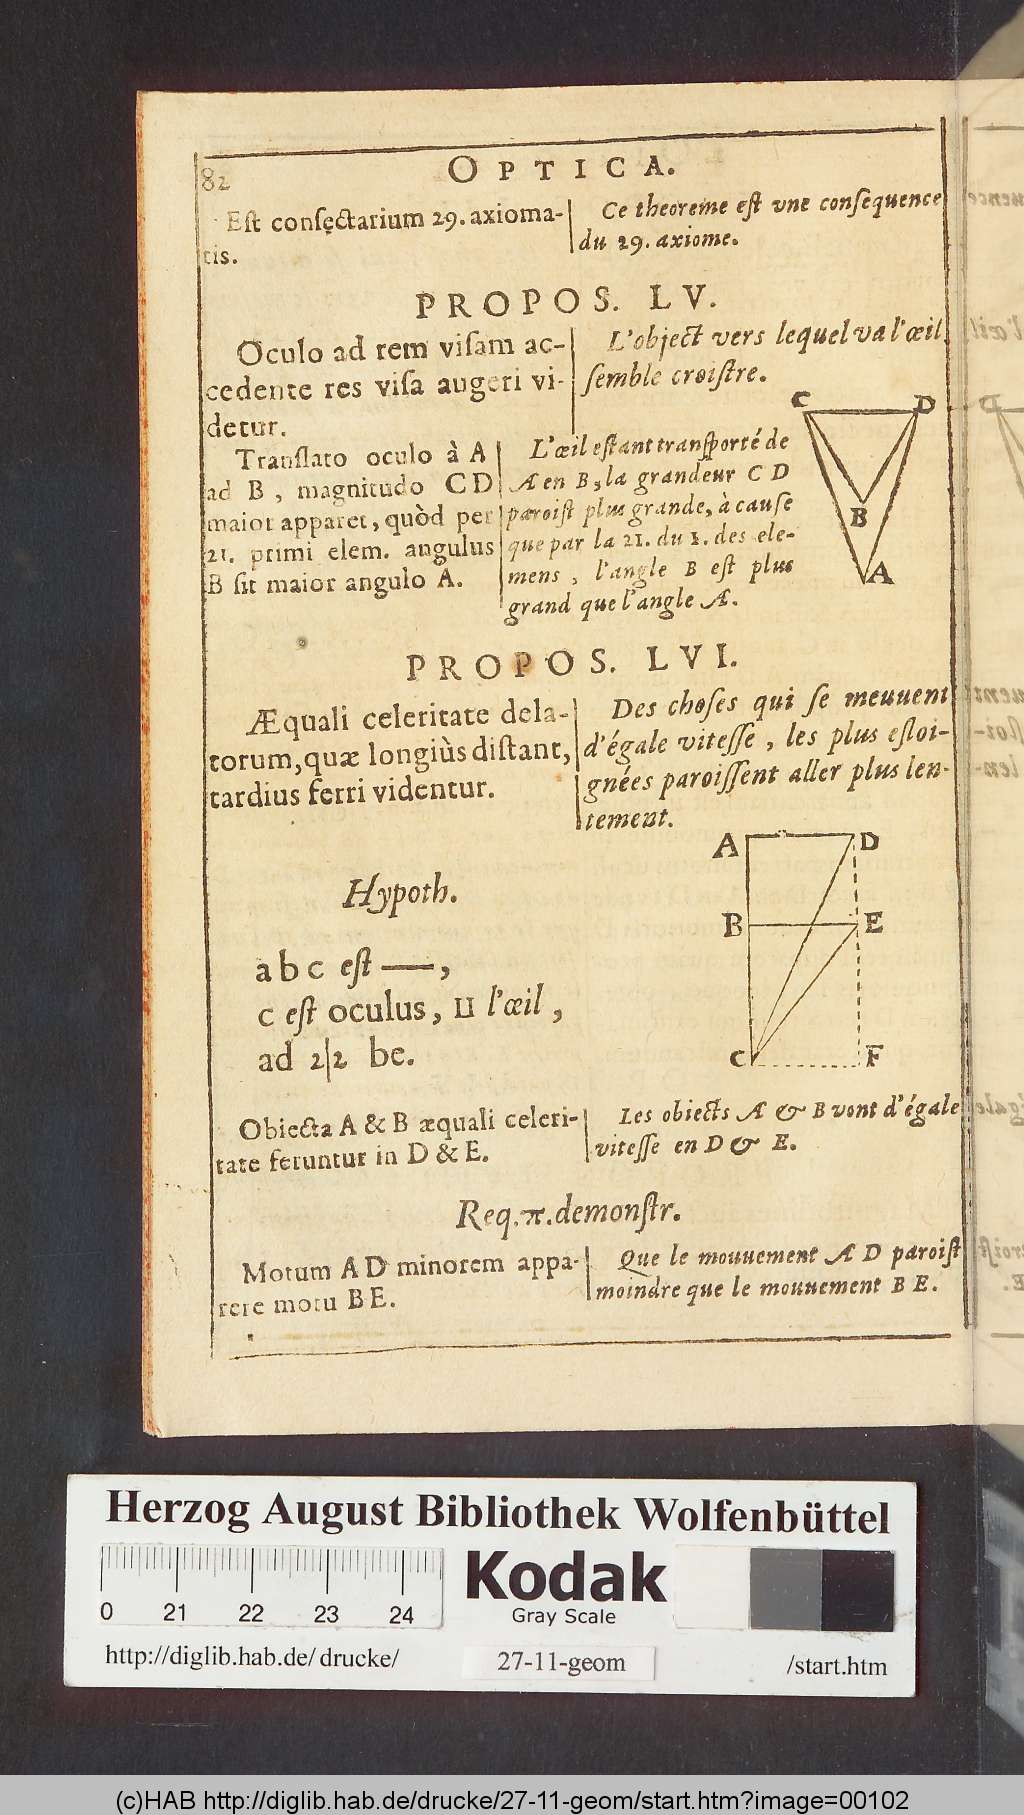 82
OPTICA.
Est consectarium 29. axioma-
tis.
Ce theoreme eſt vne conſequence
du 29. axiome.
PROPOS. LV.
Oculo ad rem viſam ac-
cedente res viſa augeri vi-
detur.
L'object vers lequel va l'œil
ſemble croiſtre.
Tranſlato oculo à A
ad B, magnitudo CD
maior apparet, quòd per
21. primi elem. angulus
B ſit maior angulo A.
L'œil eſtant tranſporté de
A en B, la grandeur C D
paroiſt plus grande, à cauſe
que par la 21. du 1. des ele-
mens, l'angle B eſt plus
grand que l'angle A.
C D
B
A
PROPOS. LVI.
Æquali celeritate dela-
torum, quæ longiùs diſtant,
tardius ferri videntur.
Des choſes qui ſe meuuent
d'égale viteſſe, les plus eſloi-
gnées paroiſſent aller plus len-
tement.
Hypoth.
a b c eſt —,
c eſt oculus, ⊔ l'œil,
ad 2|2 be.
A D
B E
C F
Obiecta A & B æquali celeri-
tate feruntur in D & E.
Les obiects A & B vont d'égale
viteſſe en D & E.
Req. π. demonſtr.
Motum A D minorem appa-
rere motu B E.
Que le mouuement A D paroiſt
moindre que le mouuement B E.
Herzog August Bibliothek Wolfenbüttel
0 21 22 23 24
Kodak
Gray Scale
http://diglib.hab.de/drucke/
27-11-geom
/start.htm
(c)HAB http://diglib.hab.de/drucke/27-11-geom/start.htm?image=00102